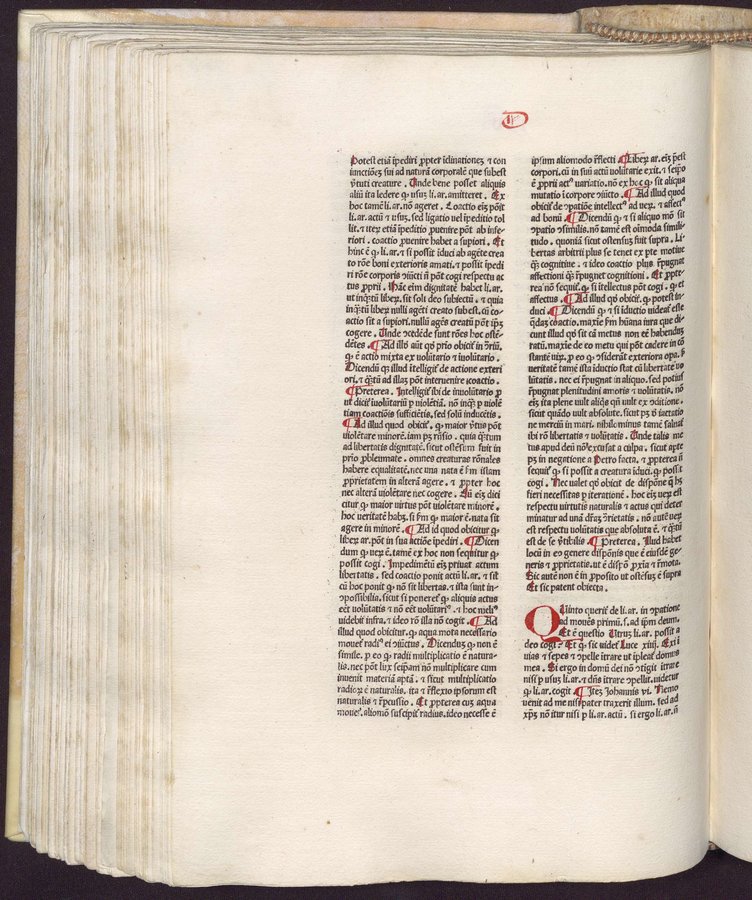 D
Potest etiã ĩpediri ꝓpter ĩdinationeꝫ ⁊ con
iunctiõeꝫ sui ad naturã corporalẽ que subest
ỹtuti creature . Unde bene posset aliquis
aliũ ita ledere ꝙ usuꝫ li . ar . amitteret . Ex
hoc tamẽ li . ar . nõ ageret . Coactio eiꝫ põit
li . ar . actũ ⁊ usuꝫ . sed ligatio uel ĩpeditio tol
lit . ⁊ iteꝫ etiã ĩpeditio ꝓuenire põt ab infe-
riori . coactio ꝓuenire habet a supiori . Et
hinc ẽ ꝙ li . ar . ⁊ si possit ĩduci ab agẽte crea
to rõe boni exterioris amati . ⁊ possit ĩpedi
ri rõe corporis ꝯiũcti ñ põt cogi respectu ac
tus ꝓprii . Hãc eiꝫ dignitatẽ habet li . ar .
ut inq̃tũ libeꝝ . sit soli deo subiectũ . ⁊ quia
inq̃tũ liber nulli agẽti creato subest . cũ co-
actio sit a supiori . nullũ agẽs creatũ põt ipꝫ
cogere . Unde ꝯcedẽde sunt rões hoc ostẽ-
dẽtes . ¶ Ad illđ aũt qđ prio obicif̃ in ꝯriũ .
ꝙ ẽ actio mixta ex volũtario ⁊ ĩuolũtario .
Dicendũ qꝫ illud ĩtelligif̃ de actione exteri
ori . ⁊ q̃tũ ad illaꝫ põt interuenire ꝯcoactio .
¶ Preterea . Intelligif̃ ibi de inuolũtario p
ut dicif̃ ĩuolũtariũ p violẽtiã . nõ inq̃ꝫ p uiolẽ
tiam coactiõis sufficiẽtis . sed solũ inducẽtis .
¶ Ad illud quod obicif̃ . ꝙ maior ỹtus põt
uiolẽtare minorẽ . iam pꝫ rñsio . quia q̃tum
ad libertatis dignitatẽ . sicut ostẽsum fuit in
prio ꝓbleumate . omnes creaturas rõnales
habere equalitatẽ . nec una nata ẽ fm̃ islam
ꝓprietatem in alterã agere . ⁊ ꝓpter hoc
nec alterã uiolẽtare nec cogere . Cũ eiꝫ dici
citur ꝙ maior virtus põt uiolẽtare minorẽ .
hoc veritatẽ habꝫ . si fm̃ ꝙ maior ẽ . nata sit
agere in minorẽ . ¶ Ad id quod obicitur ꝙ
libeꝝ ar . põt in sua actiõe ĩpediri . ¶ Dicen
dum ꝙ ueꝝ ẽ . tamẽ ex hoc non sequitur ꝙ
possit cogi . Impedimẽtũ eiꝫ priuat actum
libertatis . sed coactio ponit actũ li . ar . ⁊ sic̃
cũ hoc ponit ꝙ nõ sit libertas . ⁊ ista sunt in-
ꝯpossibilia . sicut si poneret̃ ꝙ aliquis actus
eẽt uolũtatis ⁊ nõ eẽt uolũtariꝰ . ⁊ hoc meliꝰ
uidebit̃ infra . ⁊ ideo rõ illa nõ cogit . ¶ Ad
illud quod obicitur . ꝙ aqua mota necessario
mouet̃ radiꝰ ei ꝯiũctus . Dicenduꝫ ꝙ non ẽ
simile . p eo ꝙ radii multiplicatio ẽ natura-
lis . nec põt lux seip̃am nõ multiplicare cum
inuenit materiã aptã . ⁊ sicut multiplicatio
radioꝝ ẽ naturalis . ita ⁊ r̃flexio ipsorum est
naturalis ⁊ r̃pcussio . Et ꝓpterea cuꝫ aqua
mouet̃ . aliomõ suscipit̃ radius . ideo necesse ẽ
ipsum aliomodo r̃flecti . ¶ Libeꝝ ar . eiꝫ p̃est
corpori . cũ in suũ actũ uolũtarie exit . ⁊ seip̃o
ẽ ꝓprii actꝰ variatio . nõ ex hoc ꝙ sit aliqua
mutatio ĩ corpore ꝯiũcto . ¶ Ad illud quod
obicif̃ de ꝯpatiõe intellectꝰ ad ueꝝ . ⁊ affectꝰ
ad bonũ . ¶ Dicendũ ꝙ ⁊ si aliquo mõ sit
ꝯpatio ꝯsimilis . nõ tamẽ est oĩmoda simili-
tudo . quoniã sicut ostensuꝫ fuit supra . Li-
bertas arbitrii plus se tenet ex pte motiue
q̃ꝫ cognitiue . ⁊ ideo coactio plus r̃pugnat
affectioni q̃ꝫ r̃pugnet cognitioni . Et ꝓpte-
rea nõ sequif̃ . ꝙ si intellectus põt cogi . ꝙ et
affectus . ¶ Ad illud qđ obicif̃ . ꝙ potest in-
duci . ¶ Dicendũ ꝙ ⁊ si ĩductio uideat̃ esse
q̃daꝫ coactio . maxie fm̃ hũana iura que di-
cunt illud qđ sit cã metus non eẽ habenduꝫ
ratũ . maxie de eo metu qui põt cadere in cõ
stantẽ uiꝝ . p eo ꝙ ꝯsiderãt exteriora opa . ẜ
ueritatẽ tamẽ ista ĩductio stat cũ libertate uo
lũtatis . nec ei r̃pugnat in aliquo . sed potiuſ
r̃pugnat plenitudini amoris ⁊ uolũtatis . nõ
eiꝫ ita plene vult aliq̃s qñ uult ex ꝯditione .
sicut quãdo vult absolute . sicut pꝫ ĩ iactatio
ne merciũ in mari . nihilo minus tamẽ saluat̃
ibi rõ libertatis ⁊ uolũtatis . Unde talis me
tus apud deũ nõ excusat a culpa . sicut apte
pꝫ in negatione a Petro facta . ⁊ ꝓpterea ñ
sequif̃ ꝙ si possit a creatura ĩduci . ꝙ possit
cogi . Nec ualet qđ obicit̃ de dispõne ꝙ hꝫ
fieri necessitas p iterationẽ . hoc eiꝫ ueꝝ est
respectu uirtutis naturalis ⁊ actus qui deter
minatur ad unã dr̃aꝫ ꝯrietatis . nõ autẽ ueꝝ
est respectu uolũtatis que absoluta ẽ . ⁊ q̃tũ
est de se ỹtibilis . ¶ Preterea . Illud habet
locũ in eo genere dispõnis que ẽ eiusdẽ ge-
neris ⁊ ꝓprietatis . ut ẽ dispõ ꝓxĩa ⁊ r̃mota .
Sic autẽ non ẽ in ꝓposito ut ostẽsuꝫ ẽ supra
Et sic patent obiecta .
Quinto querif̃ de li . ar . in ꝯpatione
ad mouẽs primũ . s . ad ip̃m deum .
Et ẽ questio Utruꝫ li . ar . possit a
deo cogi ? Et ꝙ sic uidet̃ Luce xiiij . Exi ĩ
uias ⁊ sepes ⁊ ꝯpelle ĩtrare ut ĩpleat̃ domus
mea . Si ergo in domũ dei nõ ꝯtigit ĩtrare
nisi p usuꝫ li . ar . ⁊ dñs ĩtrare ꝯpellit . uidetur
ꝙ li . ar . cogit . ¶ Iteꝫ Johannis vi . Nemo
uenit ad me nisi pater traxerit illum . sed ad
xp̃ꝫ nõ itur nisi p li . ar . actũ . si ergo li . ar . ñ